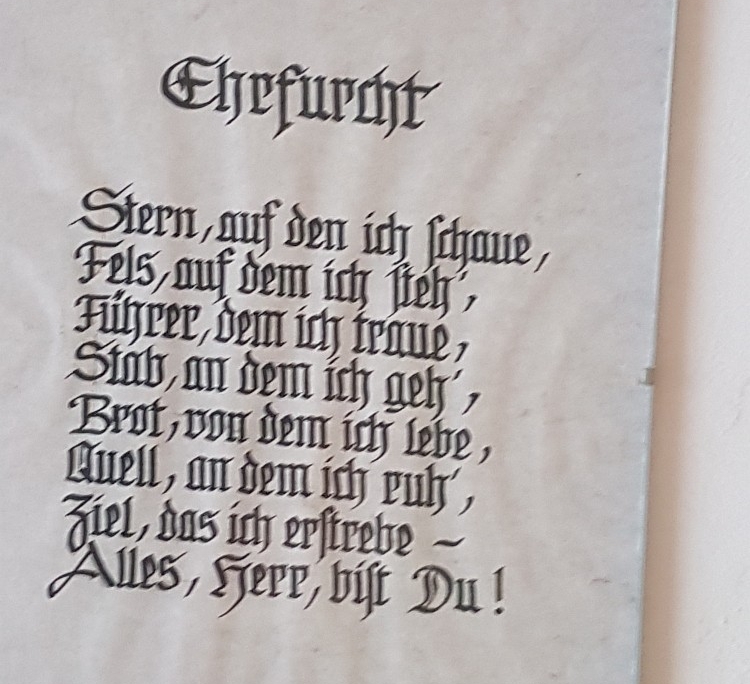 Ehrfurcht
Stern, auf den ich schaue,
Fels, auf dem ich steh',
Führer, dem ich traue,
Stab, an dem ich geh',
Brot, von dem ich lebe,
Quell, an dem ich ruh',
Ziel, das ich erstrebe –
Alles, Herr, bist Du!